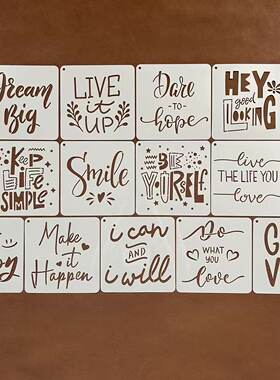 Dream
Big
LIVE
it
UP
Dare
-TO-
hope
HEY
good
LOOKING
KEEP
LIFE
SIMPLE
Smile
BE
YOURSELF
live
THE LIFE YOU
love
Make
it
Happen
i can
AND
i will
Do
WHAT
YOU
love